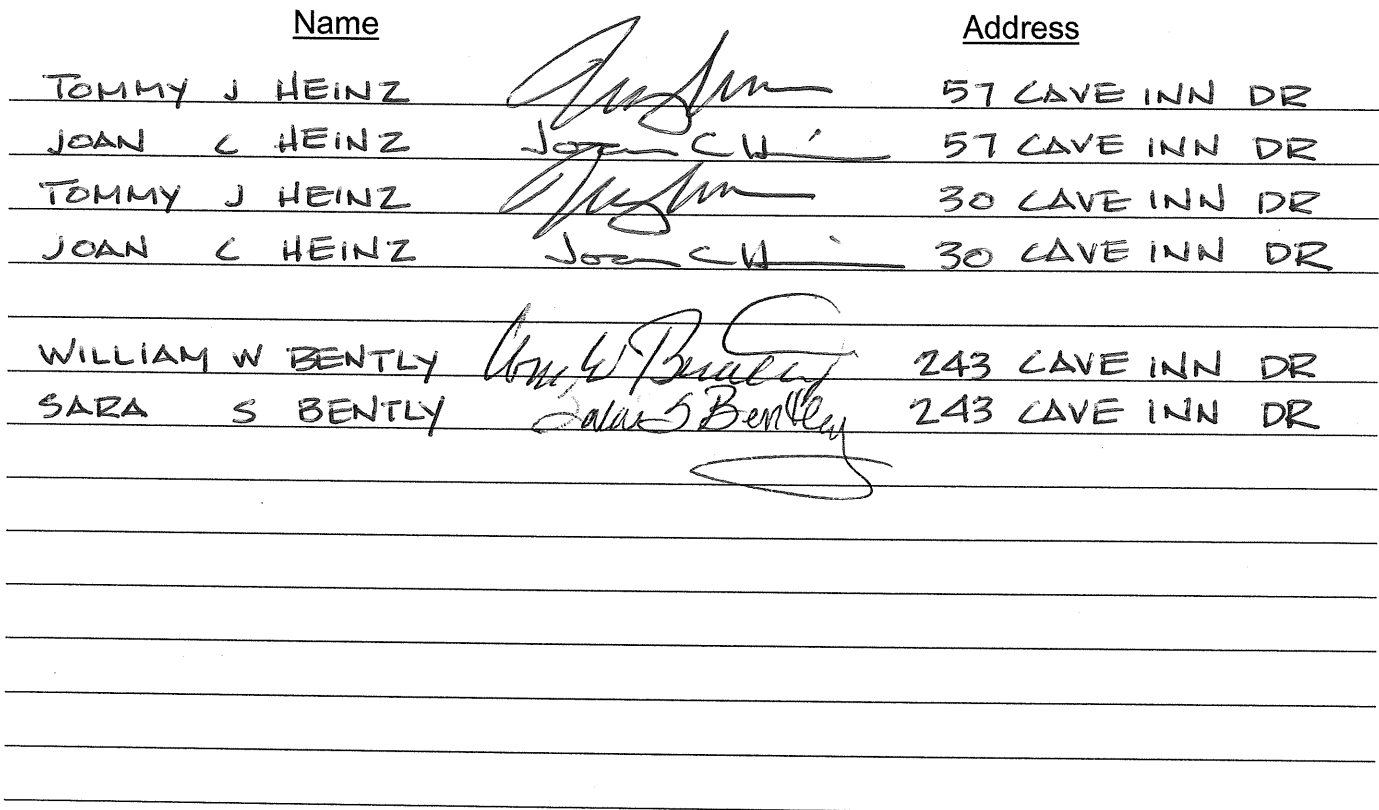 Name Address
TOMMY J HEINZ 57 CAVE INN DR
JOAN C HEINZ Joan C H 57 CAVE INN DR
TOMMY J HEINZ 30 CAVE INN DR
JOAN C HEINZ Joan C H 30 CAVE INN DR
WILLIAM W BENTLY Wm W Bentley 243 CAVE INN DR
SARA S BENTLY Sara S Bentley 243 CAVE INN DR